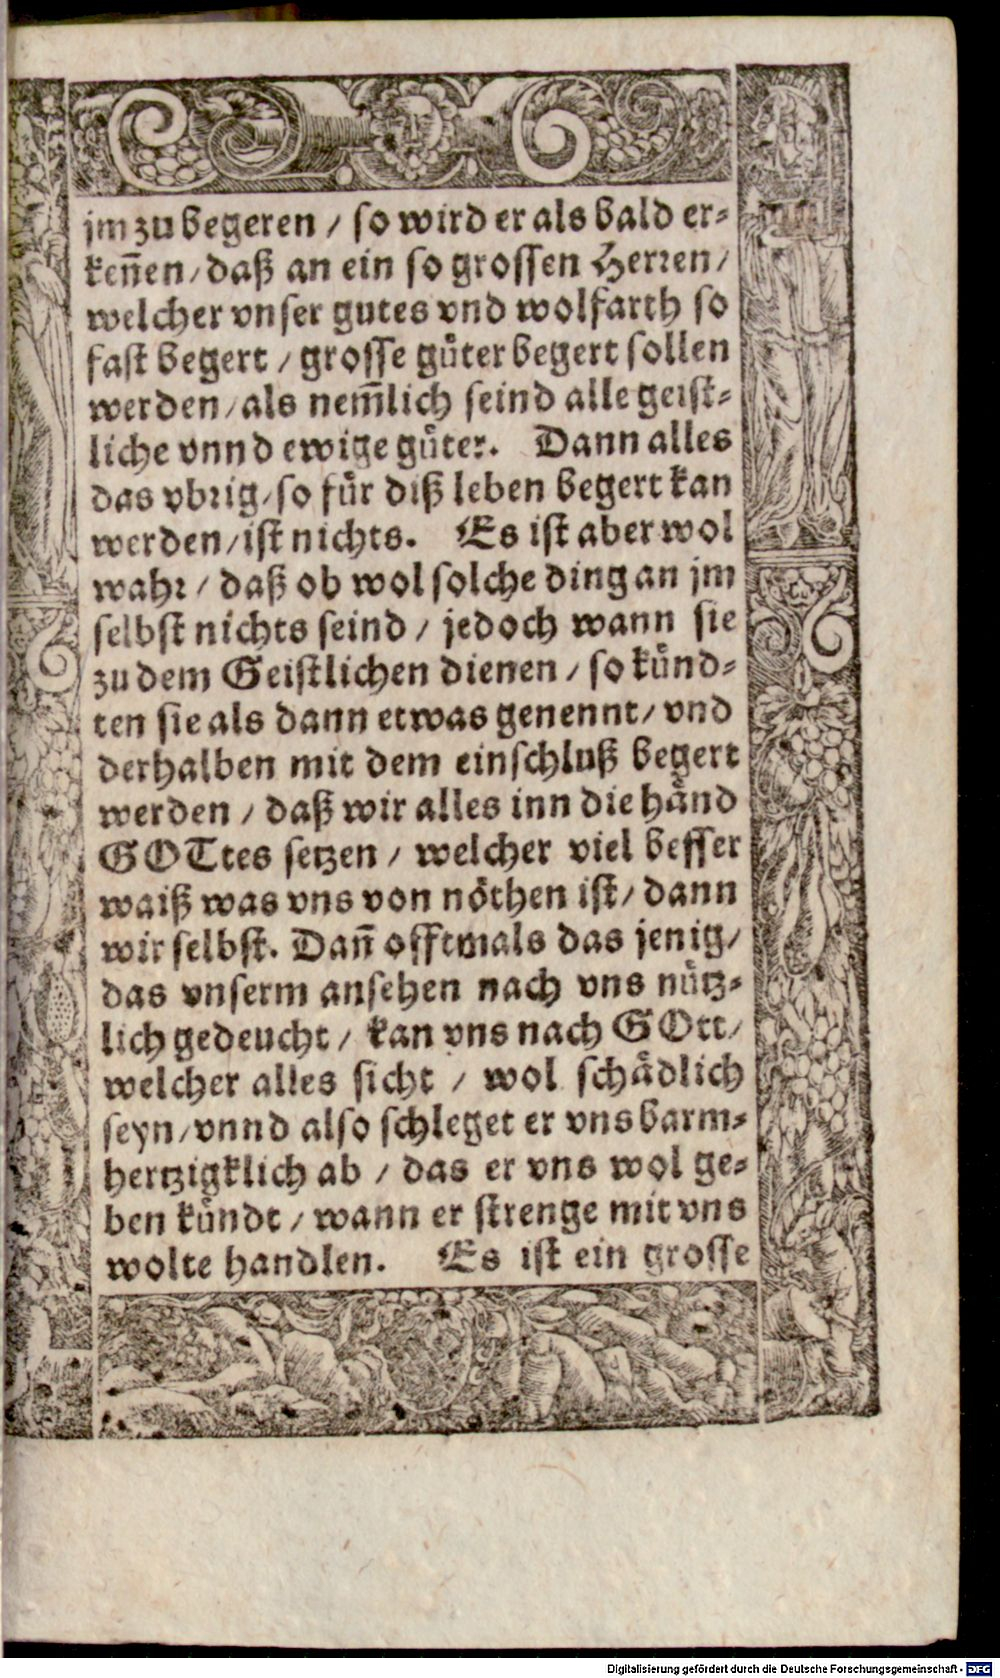 jm zu begeren / so wird er als bald er⸗
keñen / daß an ein so grossen Herren /
welcher vnser gutes vnd wolfarth so
fast begert / grosse guͤter begert sollen
werden / als nem̃lich seind alle geist⸗
liche vnnd ewige guͤter. Dann alles
das vbrig / so fuͤr diß leben begert kan
werden / ist nichts. Es ist aber wol
wahr / daß ob wol solche ding an jm
selbst nichts seind / jedoch wann sie
zu dem Geistlichen dienen / so kuͤnd⸗
ten sie als dann etwas genennt / vnd
derhalben mit dem einschluß begert
werden / daß wir alles inn die haͤnd
GOTtes setzen / welcher viel besser
waiß was vns von noͤthen ist / dann
wir selbst. Dañ offtmals das jenig /
das vnserm ansehen nach vns nuͤtz⸗
lich gedeucht / kan vns nach GOtt /
welcher alles sicht / wol schaͤdlich
seyn / vnnd also schleget er vns barm⸗
hertzigklich ab / das er vns wol ge⸗
ben kuͤndt / wann er strenge mit vns
wolte handlen. Es ist ein grosse
Digitalisierung gefördert durch die Deutsche Forschungsgemeinschaft - DFG